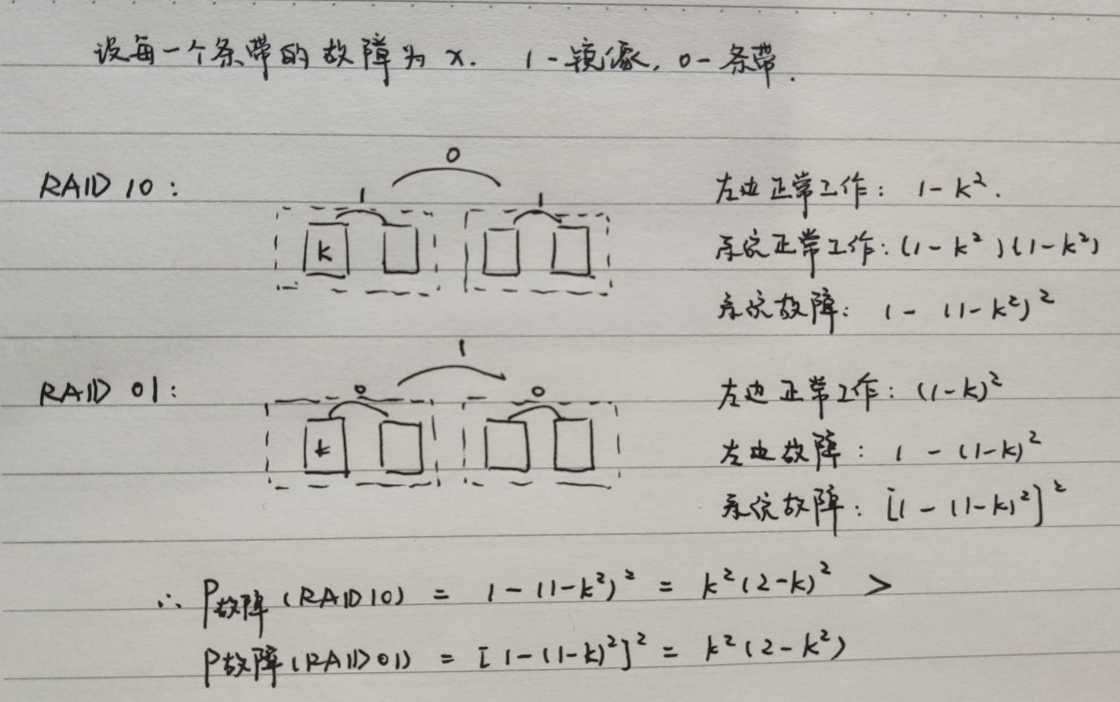 设每一个条带的故障为 x. 1-镜像, 0-条带.
0
RAID 10:
1 1
左边正常工作: 1-k².
k
系统正常工作: (1-k²)(1-k²)
系统故障: 1-(1-k²)²
1
RAID 01:
0 0
左边正常工作: (1-k)²
k
左边故障: 1-(1-k)²
系统故障: [1-(1-k)²]²
∴ P故障(RAID10) = 1-(1-k²)² = k²(2-k)² >
P故障(RAID01) = [1-(1-k)²]² = k²(2-k²)